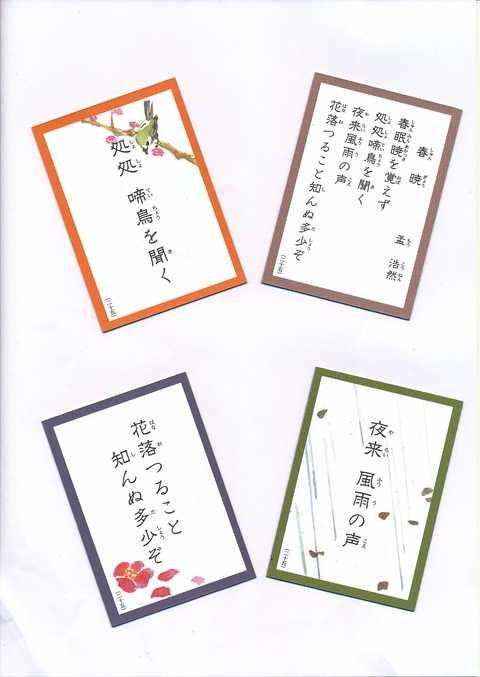 処処
啼鳥を聞く
(二十五)
春暁
孟 浩然
春眠暁を覚えず
処処啼鳥を聞く
夜来風雨の声
花落つること知んぬ多少ぞ
(二十五)
花落つること
知んぬ多少ぞ
(二十五)
夜来
風雨の声
(二十五)